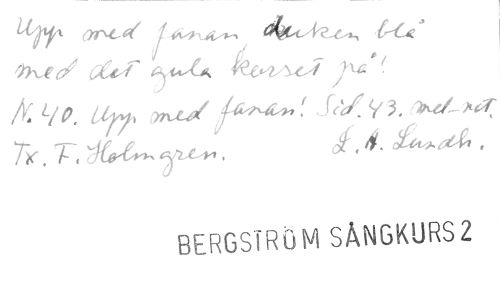 Upp med fanan, duken blå
med det gula korset på!
N. 40. Upp med fanan! Sid. 43. mel-not.
Tx. F. Holmgren. L. A. Lundh.
BERGSTRÖM SÅNGKURS 2